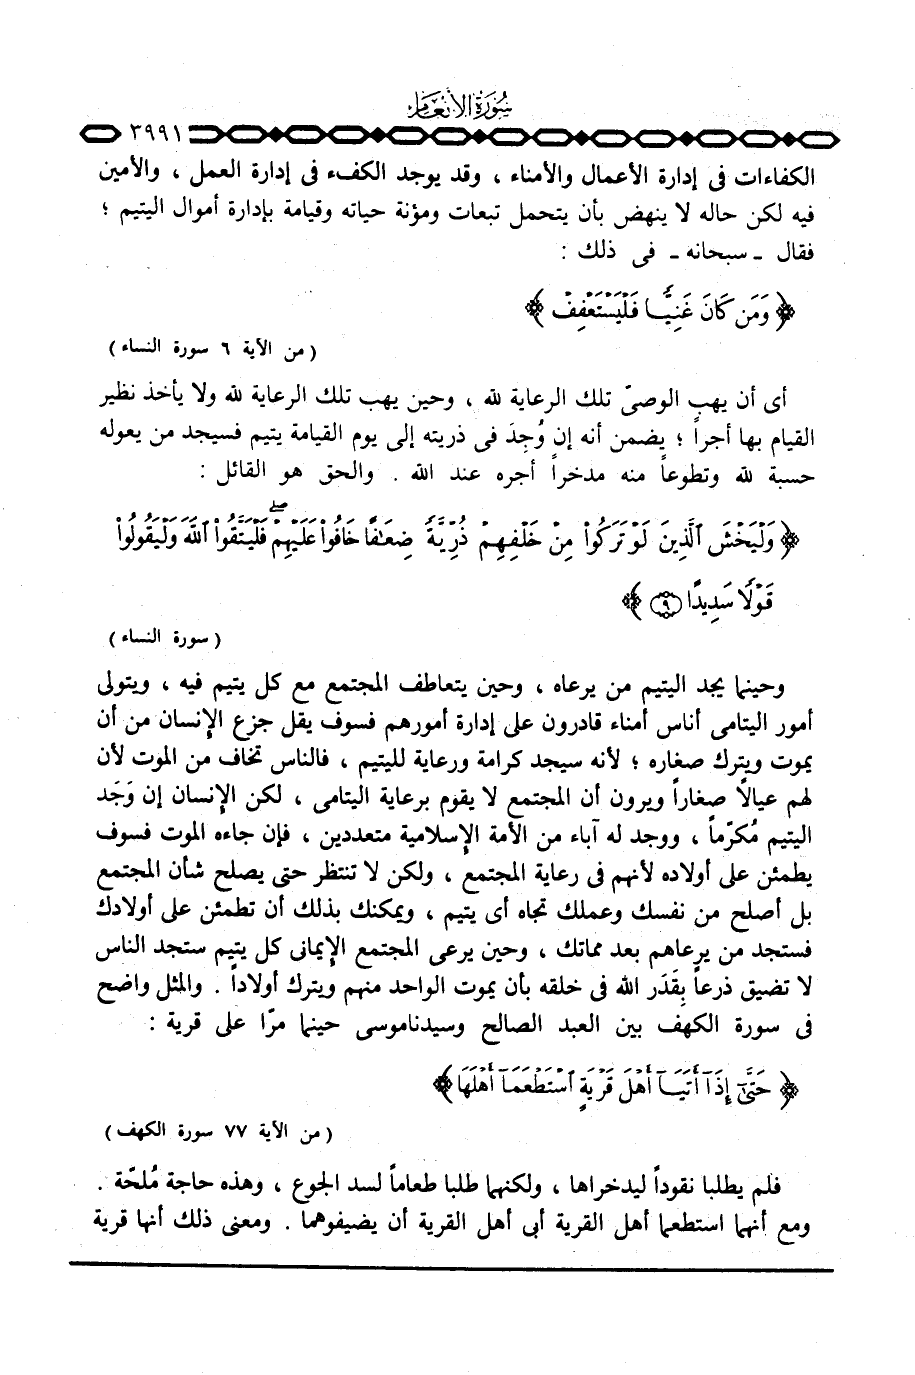 سورة الأنعام
٣٩٩١
الكفاءات فى إدارة الأعمال والأمناء ، وقد يوجد الكفء فى إدارة العمل ، والأمين
فيه لكن حاله لا ينهض بأن يتحمل تبعات ومؤنة حياته وقيامة بإدارة أموال اليتيم ؛
فقال ـ سبحانه ـ فى ذلك :
﴿ وَمَن كَانَ غَنِيًّا فَلْيَسْتَعْفِفْ ﴾
( من الآية ٦ سورة النساء )
أى أن يهب الوصىّ تلك الرعاية لله ، وحين يهب تلك الرعاية لله ولا يأخذ نظير
القيام بها أجراً ؛ يضمن أنه إن وُجِدَ فى ذريته إلى يوم القيامة يتيم فسيجد من يعوله
حسبة لله وتطوعاً منه مدخراً أجره عند الله . والحق هو القائل :
﴿ وَلْيَخْشَ ٱلَّذِينَ لَوْ تَرَكُوا۟ مِنْ خَلْفِهِمْ ذُرِّيَّةً ضِعَٰفًا خَافُوا۟ عَلَيْهِمْ ۖ فَلْيَتَّقُوا۟ ٱللَّهَ وَلْيَقُولُوا۟
قَوْلًا سَدِيدًا ٩ ﴾
( سورة النساء )
وحينما يجد اليتيم من يرعاه ، وحين يتعاطف المجتمع مع كل يتيم فيه ، ويتولى
أمور اليتامى أناس أمناء قادرون على إدارة أمورهم فسوف يقل جزع الإنسان من أن
يموت ويترك صغاره ؛ لأنه سيجد كرامة ورعاية لليتيم ، فالناس تخاف من الموت لأن
لهم عيالاً صغاراً ويرون أن المجتمع لا يقوم برعاية اليتامى ، لكن الإنسان إن وَجَد
اليتيم مُكرّماً ، ووجد له آباء من الأمة الإسلامية متعددين ، فإن جاءه الموت فسوف
يطمئن على أولاده لأنهم فى رعاية المجتمع ، ولكن لا تنتظر حتى يصلح شأن المجتمع
بل أصلح من نفسك وعملك تجاه أى يتيم ، ويمكنك بذلك أن تطمئن على أولادك
فستجد من يرعاهم بعد مماتك ، وحين يرعى المجتمع الإيمانى كل يتيم ستجد الناس
لا تضيق ذرعاً بِقَدَر الله فى خلقه بأن يموت الواحد منهم ويترك أولاداً . والمثل واضح
فى سورة الكهف بين العبد الصالح وسيدناموسى حينما مرّا على قرية :
﴿ حَتَّىٰٓ إِذَآ أَتَيَآ أَهْلَ قَرْيَةٍ ٱسْتَطْعَمَآ أَهْلَهَا ﴾
( من الآية ٧٧ سورة الكهف )
فلم يطلبا نقوداً ليدخراها ، ولكنهما طلبا طعاماً لسد الجوع ، وهذه حاجة مُلحّة .
ومع أنهما استطعما أهل القرية أبى أهل القرية أن يضيفوهما . ومعنى ذلك أنها قرية